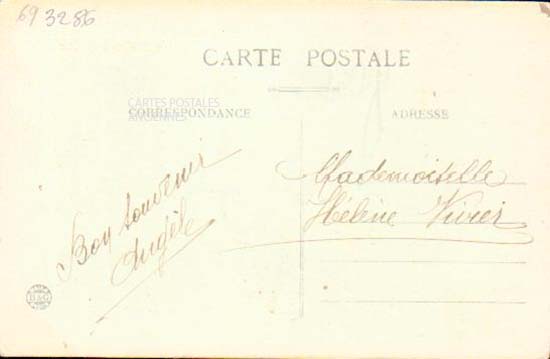 69 3286
CARTE POSTALE
CARTES POSTALES
ANCIENNES
CORRESPONDANCE
ADRESSE
Bon souvenir
Angèle
Mademoiselle
Hélène Vivier